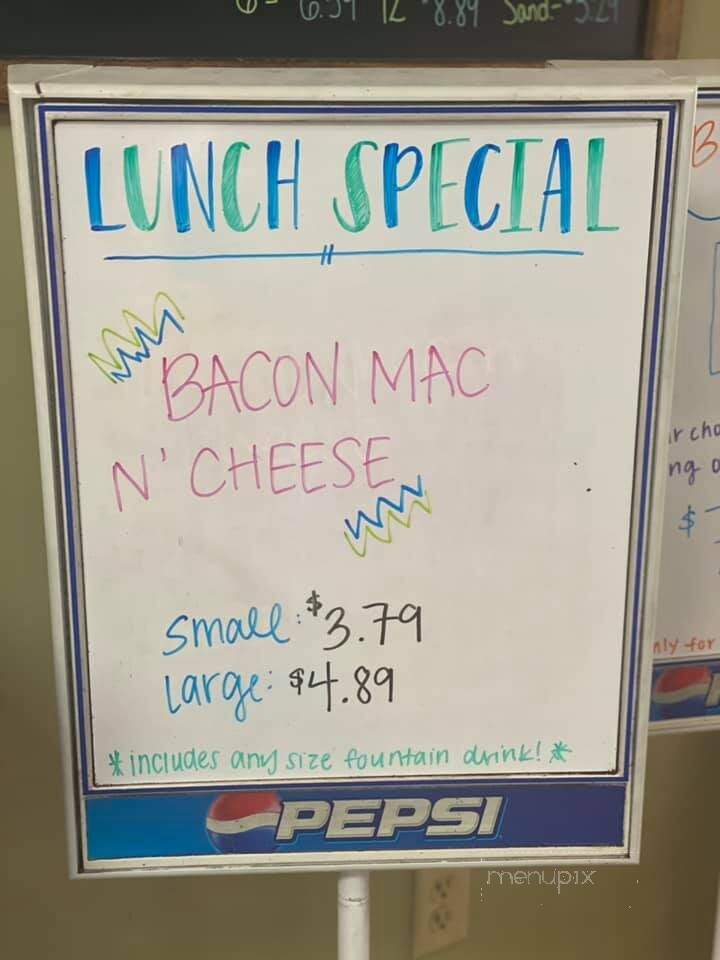 6 = 6.59 12 8.89 Sand-
LUNCH SPECIAL
BACON MAC
N' CHEESE
small: $3.79
Large: $4.89
*includes any size fountain drink!*
PEPSI
menupix
B
$